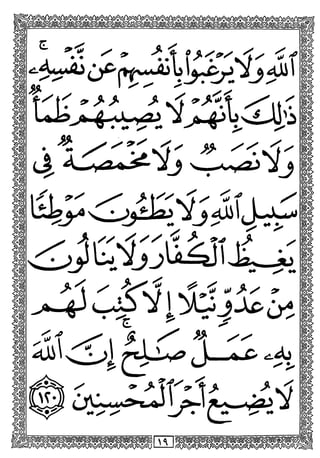 ٱللَّهِ وَلَا يَرۡغَبُواْ بِأَنفُسِهِمۡ عَن نَّفۡسِهِۦۚ
ذَٰلِكَ بِأَنَّهُمۡ لَا يُصِيبُهُمۡ ظَمَأٞ
وَلَا نَصَبٞ وَلَا مَخۡمَصَةٞ فِي
سَبِيلِ ٱللَّهِ وَلَا يَطَـُٔونَ مَوۡطِئٗا
يَغِيظُ ٱلۡكُفَّارَ وَلَا يَنَالُونَ
مِنۡ عَدُوّٖ نَّيۡلًا إِلَّا كُتِبَ لَهُم
بِهِۦ عَمَلٞ صَٰلِحٌۚ إِنَّ ٱللَّهَ
لَا يُضِيعُ أَجۡرَ ٱلۡمُحۡسِنِينَ ١٢٠
١٩